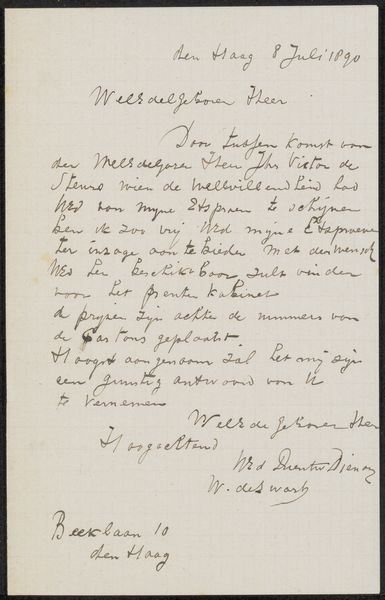 den Haag 8 Juli 1890
WelEdelgeboren Heer
Door tussen komst van
den WelEdelgeboren Heer Jhr Victor de
Stuers wien de welwillendheid had
UEd van myne Etsproeven te schrijven
ben ik zoo vrij UEd myne Etsproeven
ter inzage aan te bieden met de wensch
UEd hen beschikbaar zult vinden
voor het prenten kabinet
de pryzen zijn achter de nummers van
de cartons geplaatst
Hoogst aangenaam zal het mij zijn
een gunstig antwoord van U
te vernemen
WelEdelgeboren Heer
Hoogachtend
UEd Dienaar
W. de Zwart
Beeklaan 10
den Haag